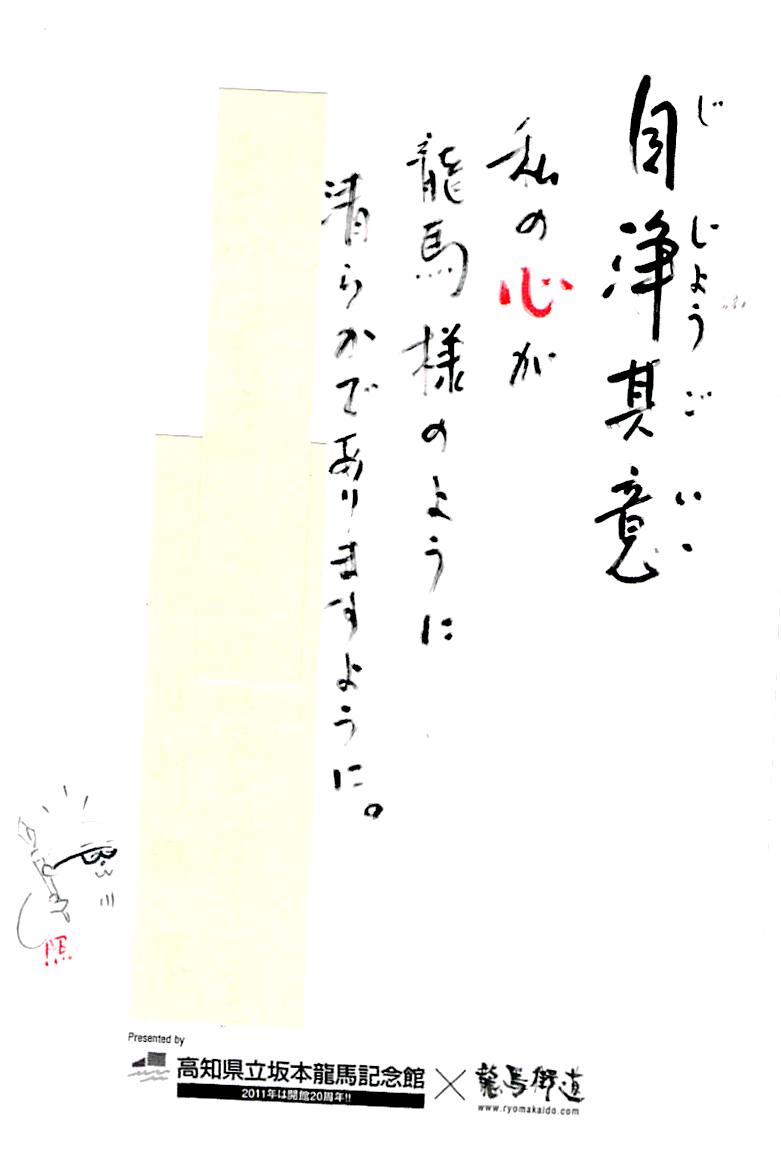 自浄其意
じじょうごい
私の心が
龍馬様のように
清らかでありますように。
Presented by
高知県立坂本龍馬記念館
2011年は開館20周年!!
×
龍馬街道
www.ryomakaido.com